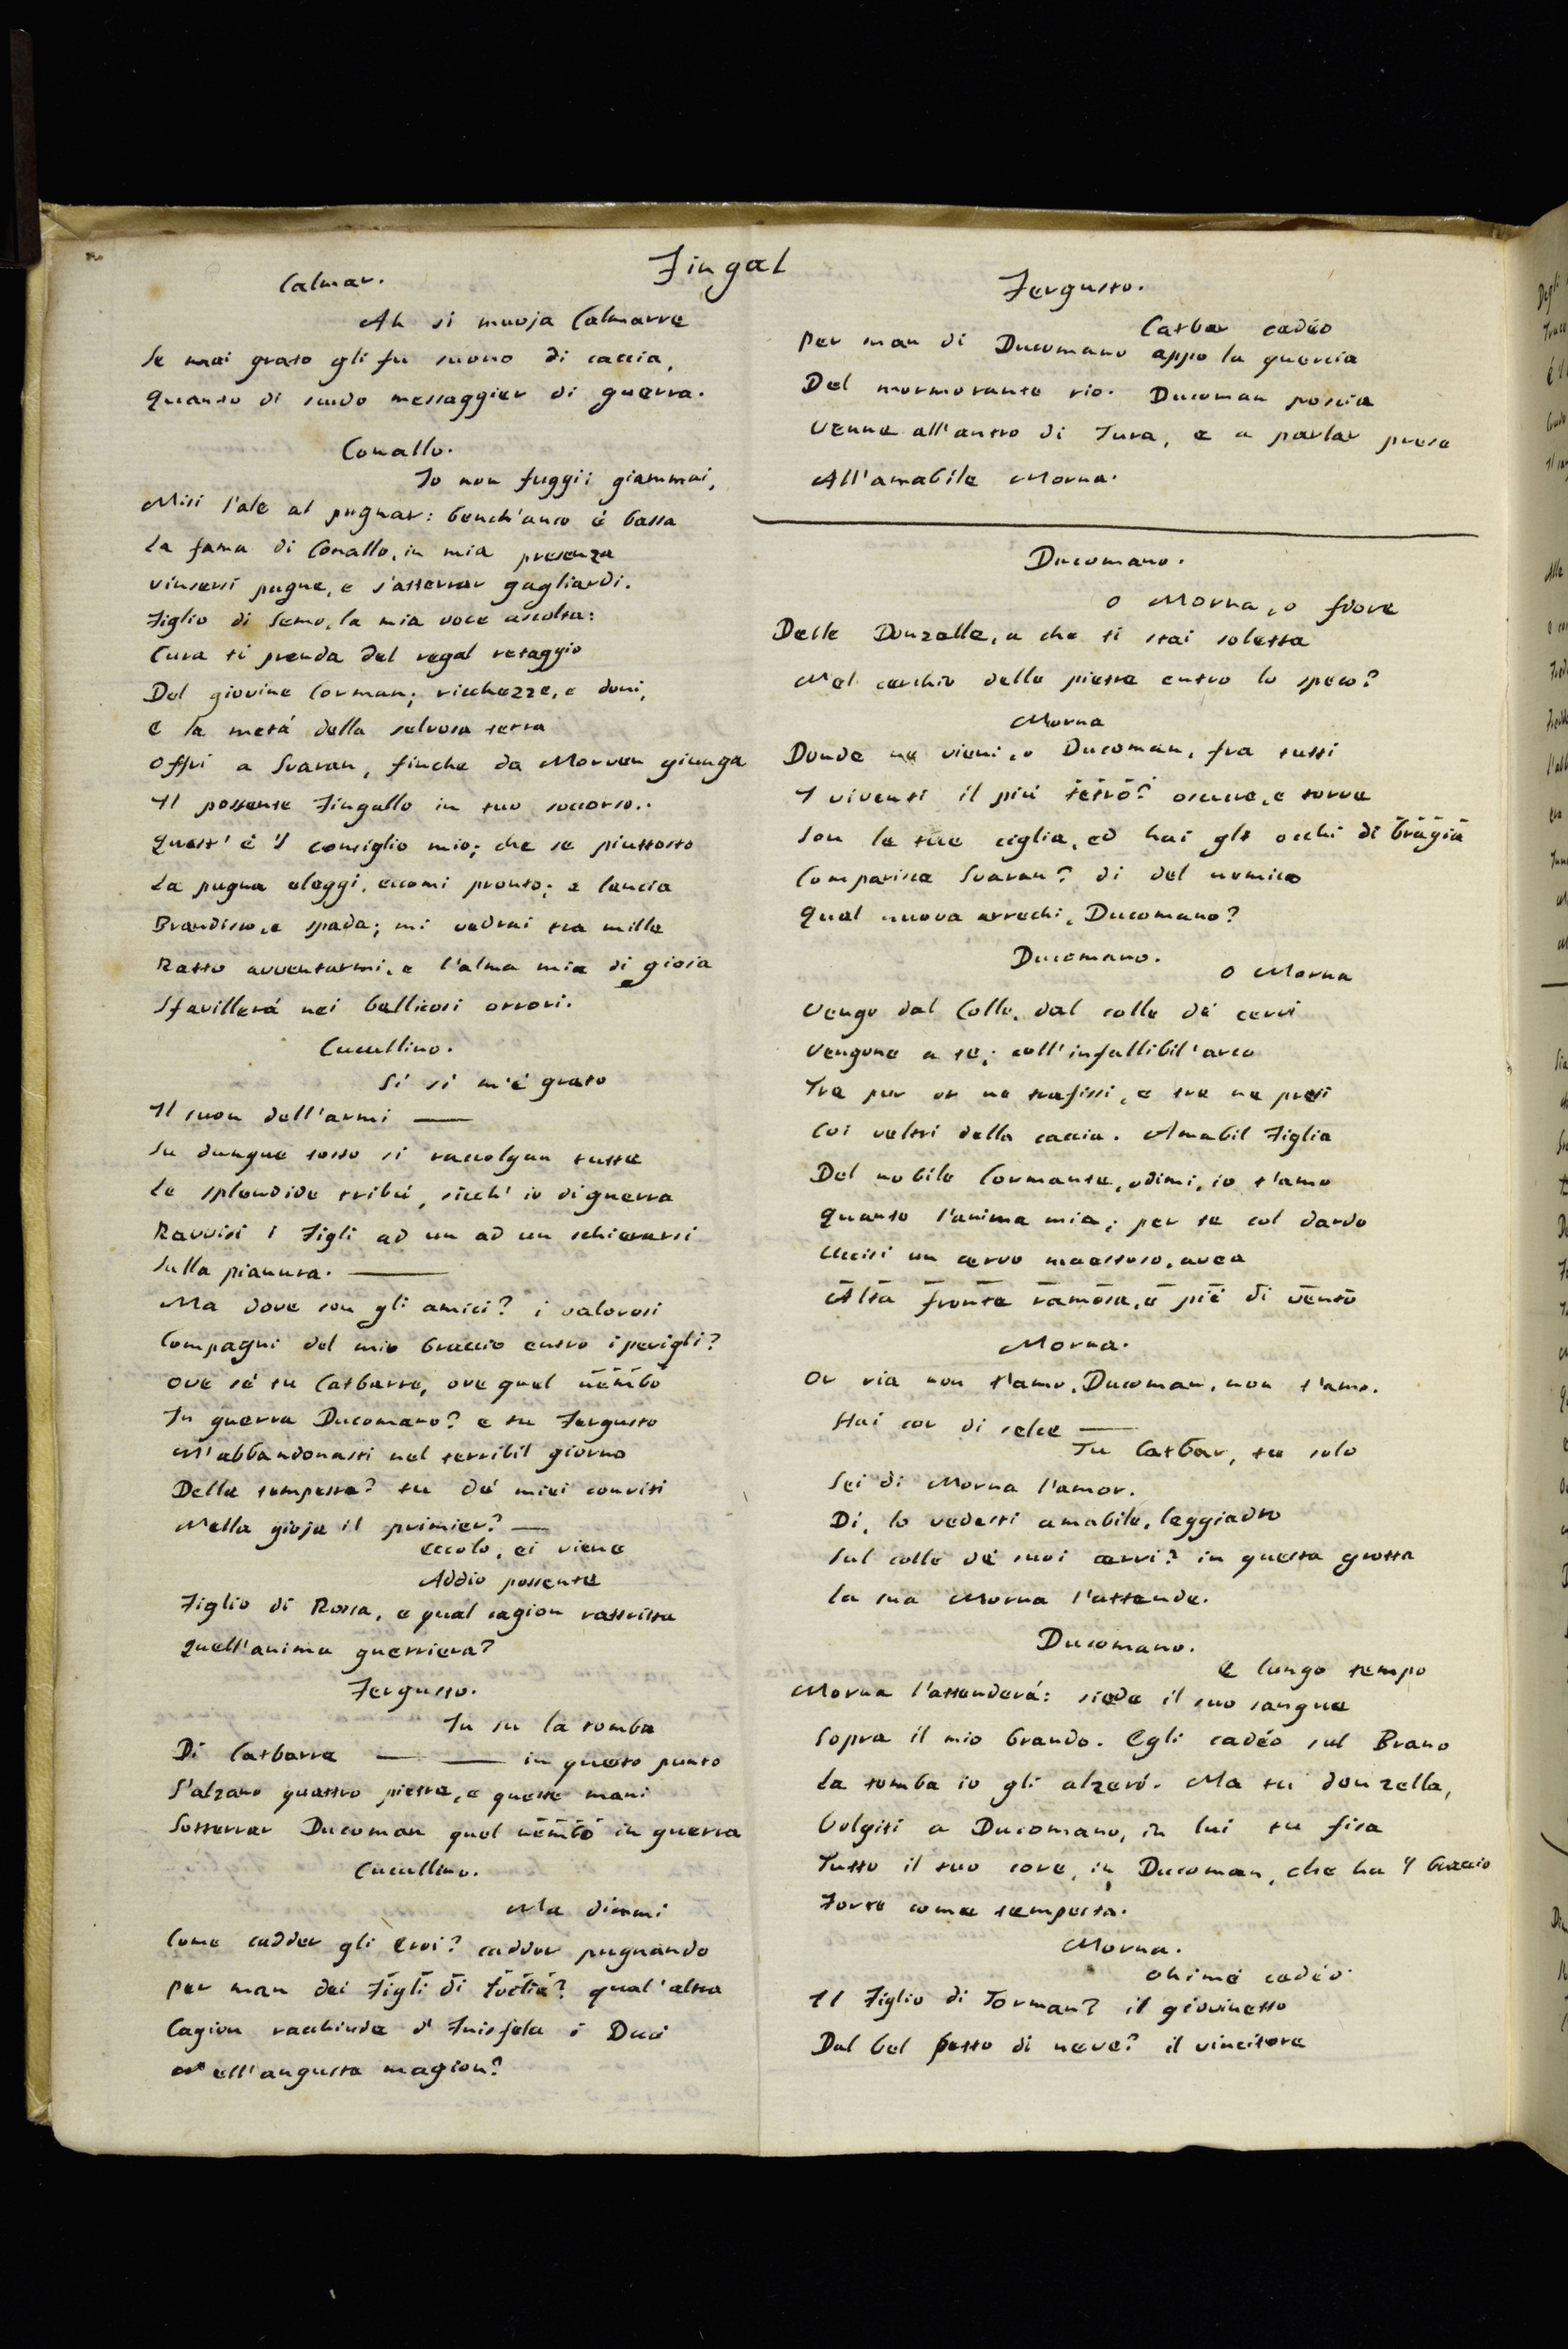 Fingal
Calmar.
Ah si muoja Calmarre
Se mai grato gli fu suono di caccia,
Quanto di scudo messaggier di guerra.
Conallo.
Io non fuggii giammai,
Misi l'ale al pugnar: bench'anco è bassa
La fama di Conallo, in mia presenza
Vinsersi pugne, e s'atterrar gagliardi.
Figlio di Semo, la mia voce ascolta:
Cura ti prenda del regal retaggio
Del giovine Corman; ricchezze, e doni,
E la metá della selvosa terra
Offri a Svaran, finche da Morven giunga
Il possente Fingallo in tuo soccorso..
Quest' é 'l consiglio mio; che se piuttosto
La pugna eleggi, eccomi pronto; e lancia
Brandisco, e spada; mi vedrai tra mille
Ratto avventarmi, e l'alma mia di gioia
Sfavillerá nei bellicosi orrori.
Cucullino.
Si si m'é grato
Il suon dell'armi —
Su dunque tosto si raccolgan tutte
Le splendide tribú, sicch' io di guerra
Ravvisi i Figli ad un ad un schierarsi
Sulla pianura. —
Ma dove son gli amici? i valorosi
Compagni del mio braccio entro i perigli?
Ove sé tu Catbarre, ove quel nembo
In guerra Ducomano? e tu Fergusto
M'abbandonasti nel terribil giorno
Della tempesta? tu dé miei conviti
Nella gioja il primier? —
Eccolo, ei viene
Addio possente
Figlio di Rossa, e qual cagion rattrista
Quell'anima guerriera?
Fergusto.
In su la tomba
Di Catbarre — — in questo punto
S'alzano quattro pietre, e queste mani
Sotterrar Ducoman quel nembo in guerra
Cucullino.
Ma dimmi
Come cadder gli Eroi? cadder pugnando
Per man dei Figli di Loclin? qual'altra
Cagion racchiude d'Inisfela i Duci
Nell'angusta magion?
Fergusto.
Catbar cadéo
Per man di Ducomano appo la quercia
Del mormorante rio. Ducoman poscia
Venne all'antro di Tura, e a parlar prese
All'amabile Morna.
Ducomano.
O Morna, o fiore
Delle Donzelle, a che ti stai soletta
Nel cerchio delle pietre entro lo speco?
Morna
Donde ne vieni, o Ducoman, fra tutti
I viventi il piú tetro? oscure, e torve
Son le tue ciglia, ed hai gli occhi di bragia
Comparisce Svaran? di del nemico
Qual nuova arrechi, Ducomano?
Ducomano.
O Morna
Vengo dal Colle, dal colle dé cervi
Vengone a te; coll'infallibil'arco
Tre pur or ne trafissi, e tre ne presi
Coi veltri della caccia. Amabil Figlia
Del nobile Cormante, odimi, io t'amo
Quanto l'anima mia; per te col dardo
Uccisi un cervo maestoso, avea
Alta fronte ramosa, e pié di vento
Morna.
Or via non t'amo, Ducoman, non t'amo.
Hai cor di selce —
Tu Catbar, tu solo
Sei di Morna l'amor.
Di, lo vedesti amabile, leggiadro
Sul colle dé suoi cervi? in questa grotta
La sua Morna l'attende.
Ducomano.
E lungo tempo
Morna l'attenderá: siede il suo sangue
Sopra il mio brando. Egli cadéo sul Brano
La tomba io gli alzeró. Ma tu donzella,
Volgiti a Ducomano, in lui tu fisa
Tutto il tuo core, in Ducoman, che ha 'l braccio
Forte come tempesta.
Morna.
Ohimé cadéo
Il Figlio di Torman? il giovinetto
Dal bel petto di neve? il vincitore